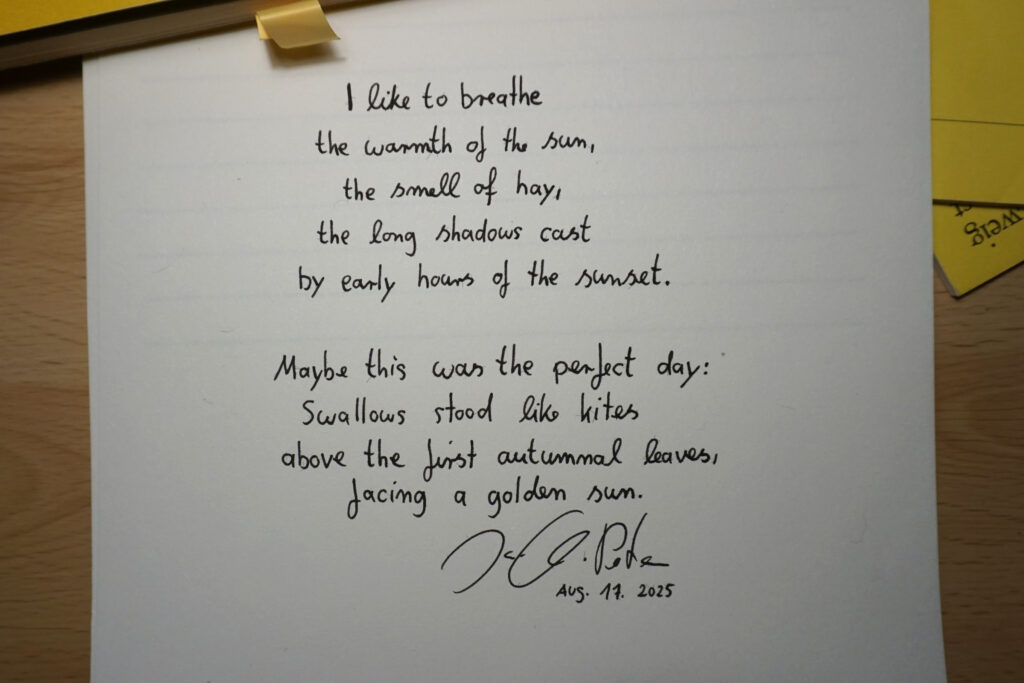 I like to breathe
the warmth of the sun,
the smell of hay,
the long shadows cast
by early hours of the sunset.
Maybe this was the perfect day:
Swallows stood like kites
above the first autumnal leaves,
facing a golden sun.
Aug. 17. 2025
weig